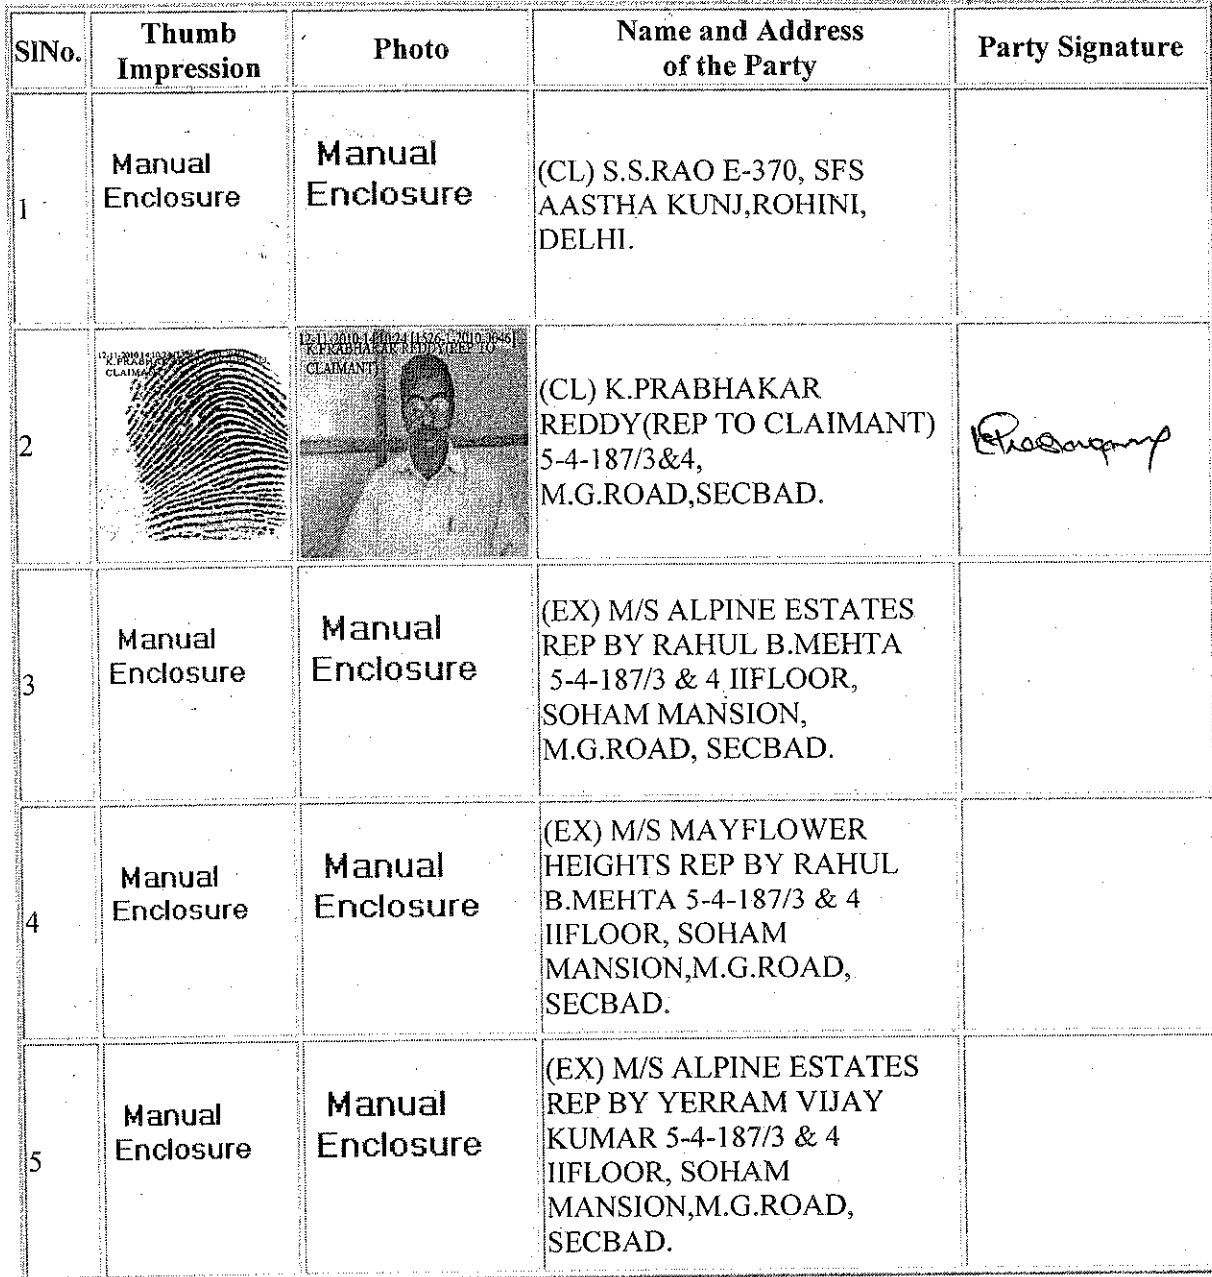 SlNo.
Thumb
Impression
Photo
Name and Address
of the Party
Party Signature
1
Manual
Enclosure
Manual
Enclosure
(CL) S.S.RAO E-370, SFS
AASTHA KUNJ,ROHINI,
DELHI.
2
CLAIMANT]
(CL) K.PRABHAKAR
REDDY(REP TO CLAIMANT)
5-4-187/3&4,
M.G.ROAD,SECBAD.
3
Manual
Enclosure
Manual
Enclosure
(EX) M/S ALPINE ESTATES
REP BY RAHUL B.MEHTA
5-4-187/3 & 4 IIFLOOR,
SOHAM MANSION,
M.G.ROAD, SECBAD.
4
Manual
Enclosure
Manual
Enclosure
(EX) M/S MAYFLOWER
HEIGHTS REP BY RAHUL
B.MEHTA 5-4-187/3 & 4
IIFLOOR, SOHAM
MANSION,M.G.ROAD,
SECBAD.
5
Manual
Enclosure
Manual
Enclosure
(EX) M/S ALPINE ESTATES
REP BY YERRAM VIJAY
KUMAR 5-4-187/3 & 4
IIFLOOR, SOHAM
MANSION,M.G.ROAD,
SECBAD.